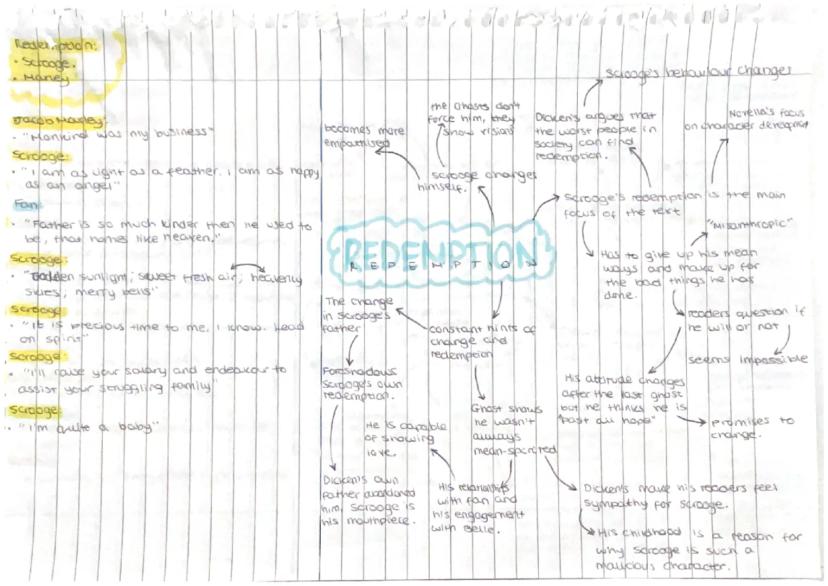 Redemption:
• Scrooge.
• Marley
Jacob Marley:
• "Mankind was my business"
Scrooge:
• "I am as light as a feather. I am as happy
as an angel"
Fan:
• "Father is so much kinder then he used to
be, that homes like heaven."
Scrooge:
• "Golden sunlight; sweet fresh air; heavenly
skies; merry bells"
Scrooge
• "It is precious time to me, I know. Lead
on spirit"
Scrooge:
• "I'll raise your salary and endeavour to
assist your struggling family"
Scrooge:
• "I'm quite a baby"
REDEMPTION
REDEMPTION
becomes more
empathised
the Ghosts don't
force him, they
show visions
Scrooge changes
himself.
Dicken's argues that
the worst people in
society can find
redemption.
Scrooge's behaviour changes
Novella's focus
on character
Scrooge's redemption is the main
focus of the text
"Misanthropic"
Has to give up his mean
ways and make up for
the bad things he has
done.
readers question if
he will or not
seems impossible
His attitude changes
after the last ghost
but he thinks he is
"past all hope"
promises to
change.
The change
in Scrooge's
father
constant hints of
change and
redemption
Scrooge's own
redemption.
He is capable
of showing
love.
Ghost shows
he wasn't
always
mean-spirited
Dicken's own
father abandoned
him, Scrooge is
his mouthpiece.
His relationship
with Fan and
his engagement
with Belle.
Dicken's make his readers feel
sympathy for Scrooge.
His childhood is a reason for
why Scrooge is such a
malicious character.